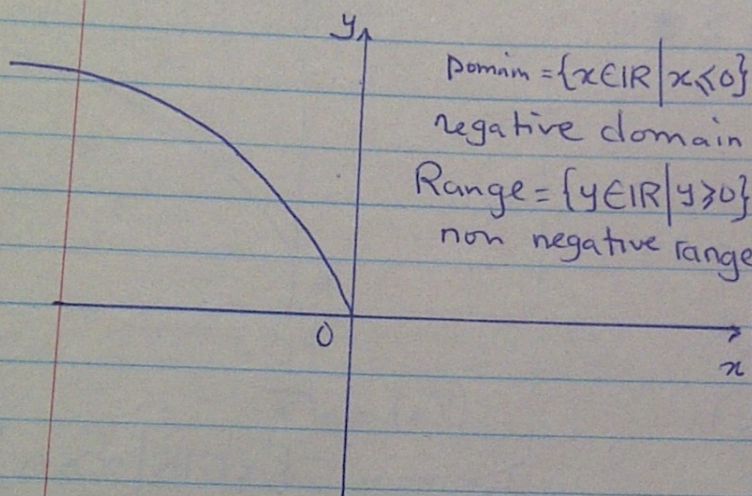 y
Domain = {x∈ℝ | x≤0}
negative domain
Range = {y∈ℝ | y≥0}
non negative range
0
x